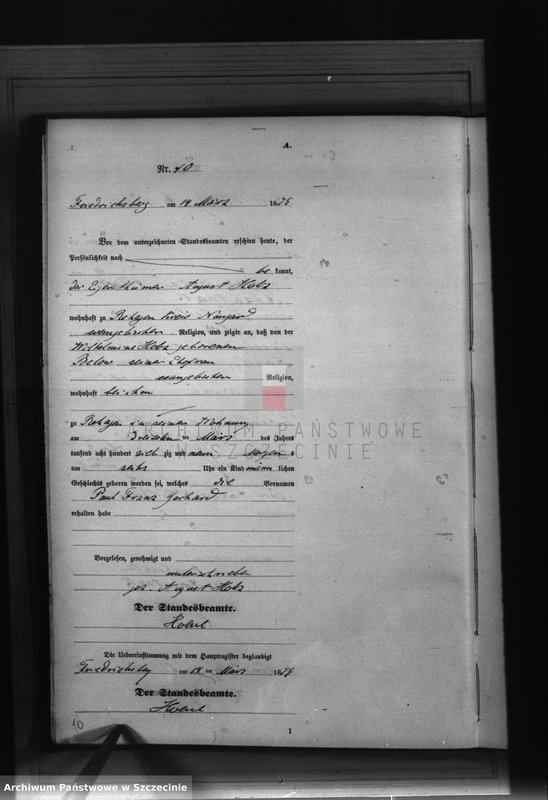 A.
Nr. 10
Friedrichsberg am 14 März 1879
Vor dem unterzeichneten Standesbeamten erschien heute, der
Persönlichkeit nach
be kannt,
der Eigenthümer August
wohnhaft zu Kreis Naugard
evangelischer Religion, und zeigte an, daß von der
Wilhelmine geborenen
Below seiner Ehefrau
evangelischen Religion,
wohnhaft bei ihm
zu in seiner Wohnung
am dreizehn ten März des Jahres
tausend acht hundert sieb zig und neun Morgens
um sechs Uhr ein Kind männ lichen
Geschlechts geboren worden sei, welches die Vornamen
Paul Franz Gerhard
erhalten habe
Vorgelesen, genehmigt und
unterschrieben
gez. August
Der Standesbeamte.
Die Uebereinstimmung mit dem Hauptregister beglaubigt
Friedrichsberg am 14 ten März 1879
Der Standesbeamte.
10
1
ARCHIWUM PAŃSTWOWE
W SZCZECINIE
Archiwum Państwowe w Szczecinie